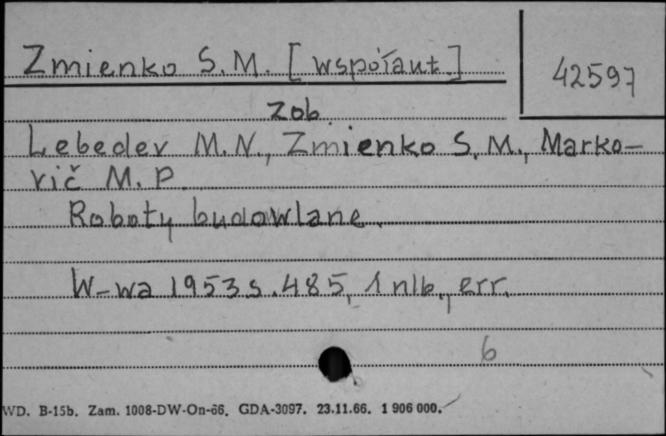 Zmienko S. M. [współaut.]
42597
zob.
Lebedev M. N., Zmienko S. M., Marko-
vič M. P.
Roboty budowlane.
W-wa 1953 s. 485, 1 nlb., err.
6
WD. B-15b. Zam. 1008-DW-On-66. GDA-3097. 23.11.66. 1 906 000.